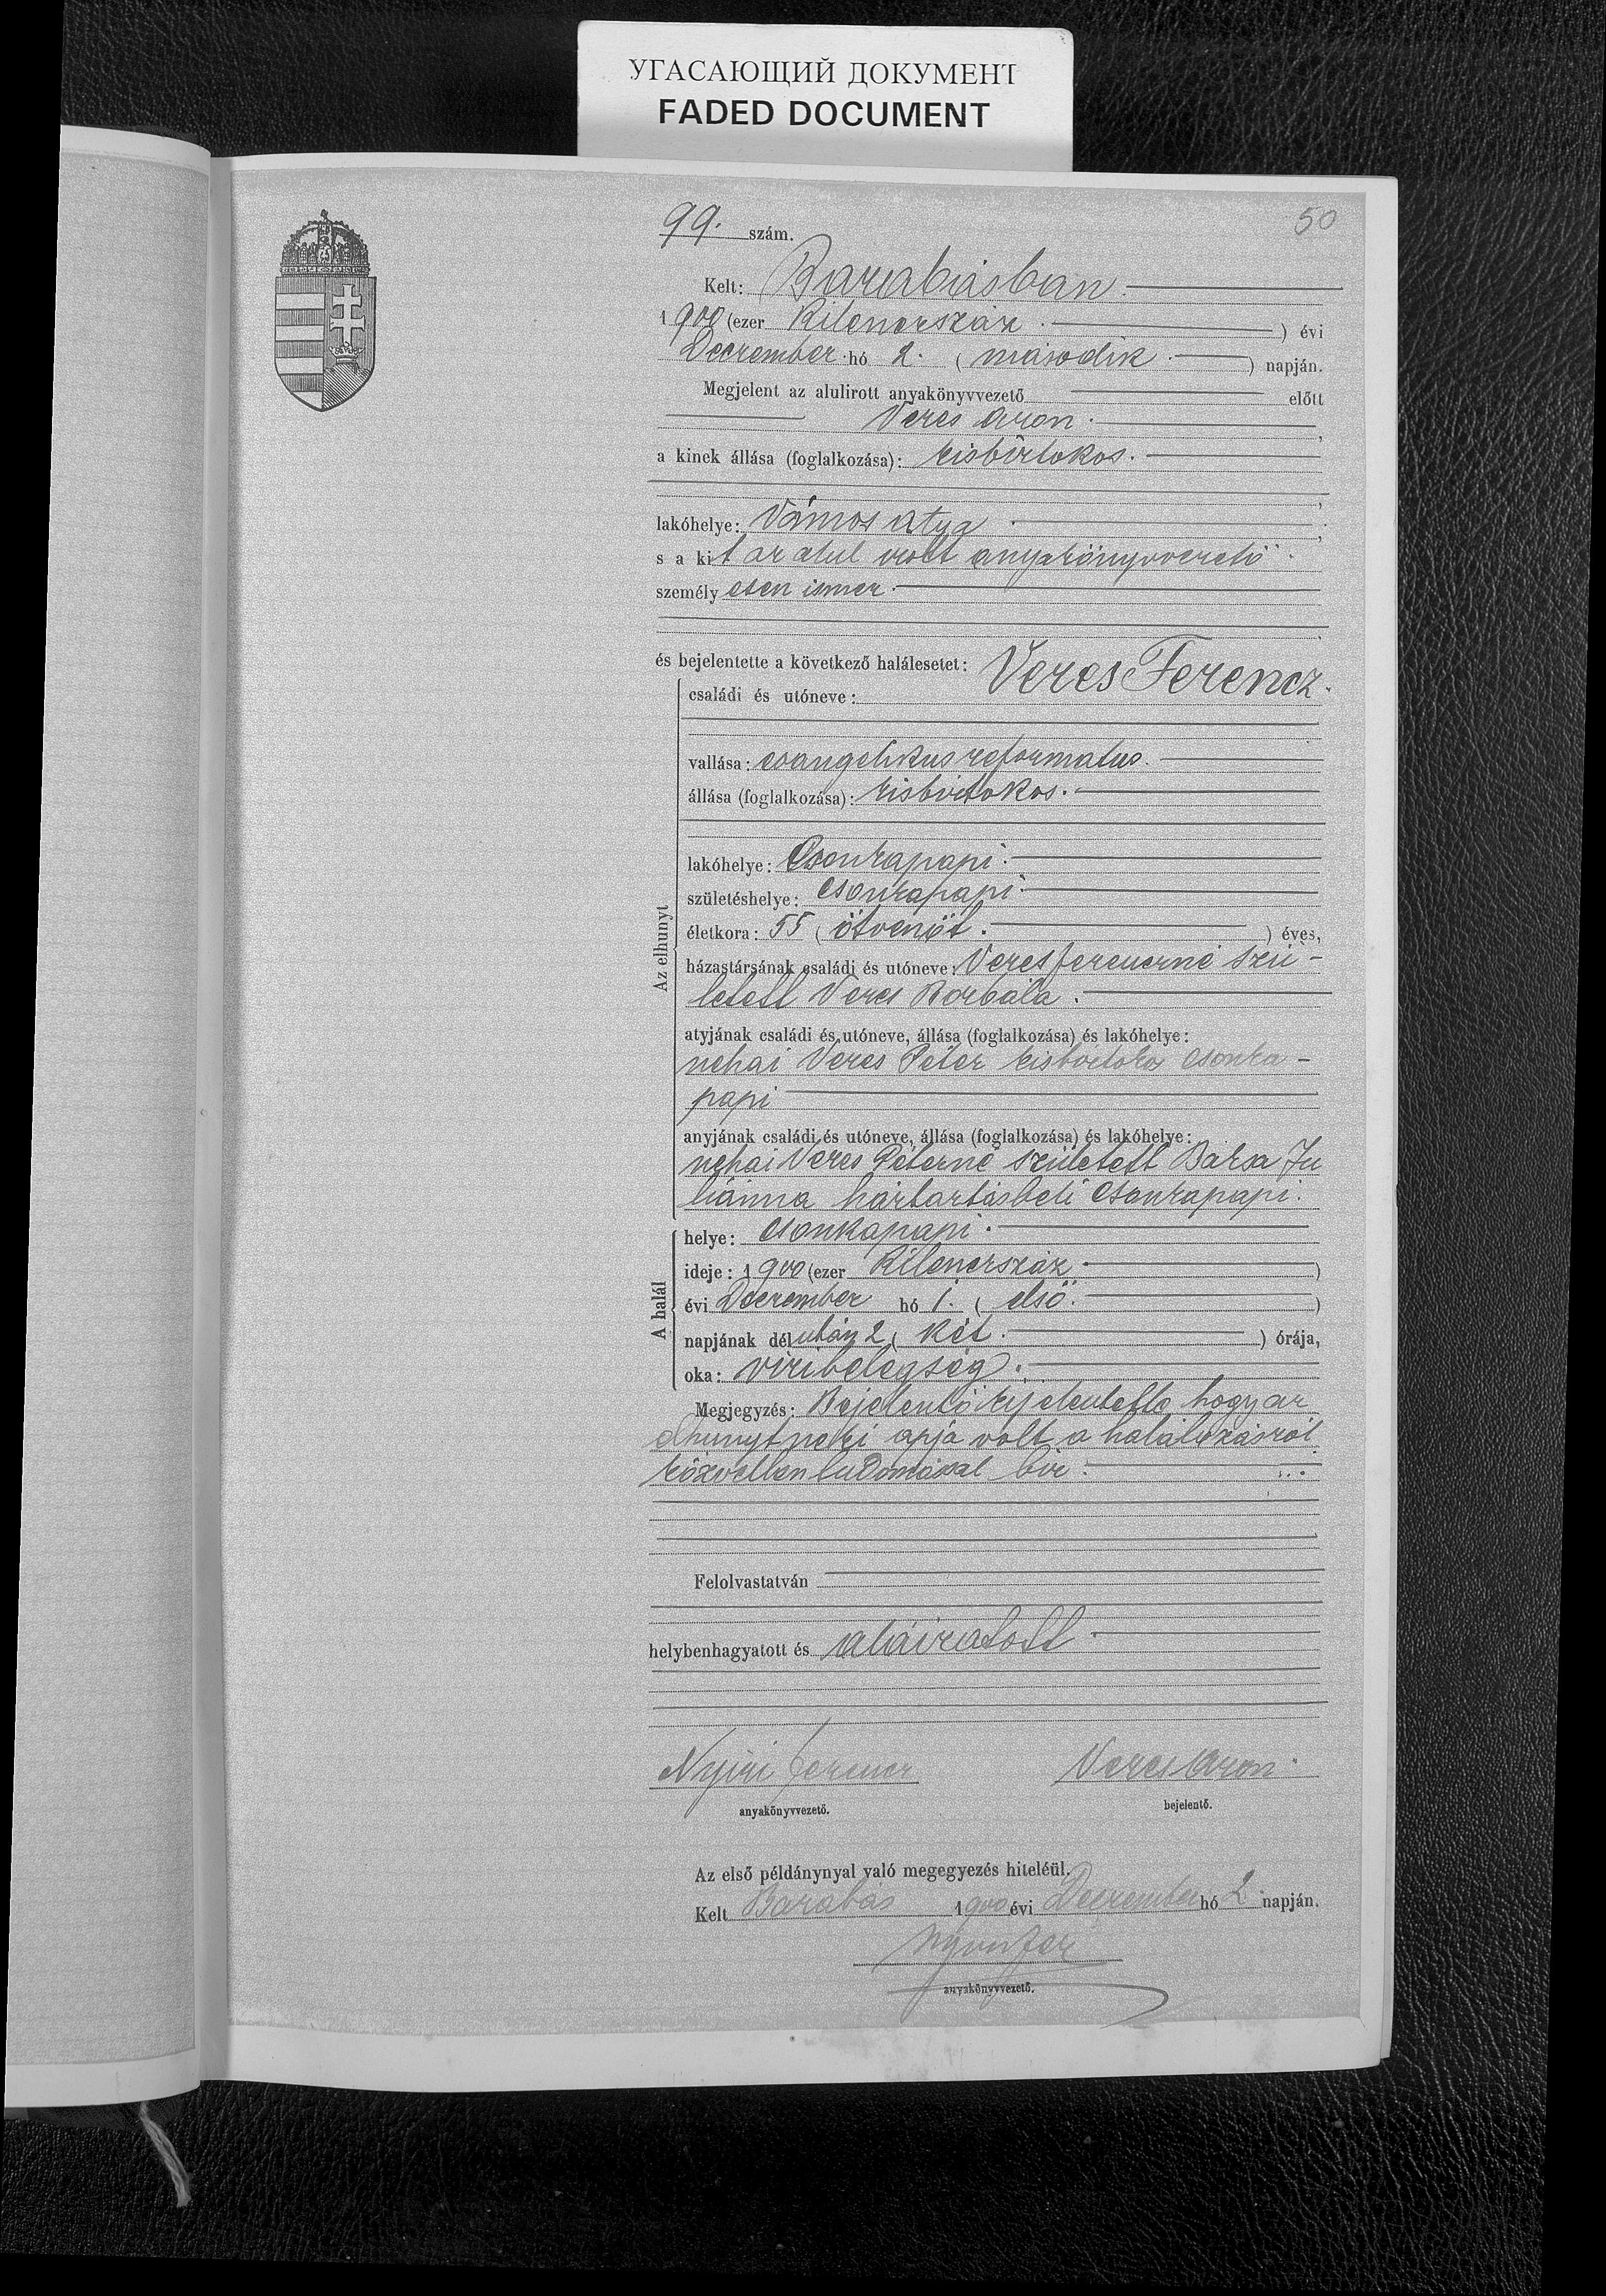 УГАСАЮЩИЙ ДОКУМЕНТ
FADED DOCUMENT
50
99. szám.
Kelt: Barabásban.
1900 (ezer kilenczszáz.) évi
Deczember hó 2. (második.) napján.
Megjelent az alulirott anyakönyvvezető előtt
Veres Áron.
a kinek állása (foglalkozása): kisbirtokos.
lakóhelye: Vámos atya
s a kit az alul irott anyakönyvvezető
személyesen ismer.
és bejelentette a következő halálesetet:
családi és utóneve: Veres Ferencz.
vallása: evangelikus reformatus.
állása (foglalkozása): kisbirtokos.
Az elhunyt
lakóhelye: Csonkapapi.
születéshelye: Csonkapapi
életkora: 55 (ötvenöt.) éves,
házastársának családi és utóneve: Veres Ferenczné szü-
letett Veres Borbála.
atyjának családi és utóneve, állása (foglalkozása) és lakóhelye:
néhai Veres Péter kisbirtokos Csonka-
papi
anyjának családi és utóneve, állása (foglalkozása) és lakóhelye:
néhai Veres Péterné született Barsa Ju
liánna háztartásbeli Csonkapapi.
A halál
helye: Csonkapapi.
ideje: 1900 (ezer kilenczszáz)
évi Deczember hó 1. (első.)
napjának délután 2 (két.) órája,
oka: vizibetegség.
Megjegyzés: Bejelentő kijelentette hogy az
elhunyt neki apja volt a halálozásról
közvetlen tudomással bir.
Felolvastatván
helybenhagyatott és aláiratott
Nyiri Ferencz
Veres Áron.
anyakönyvvezető.
bejelentő.
Az első példánynyal való megegyezés hiteléül.
Kelt Barabás 1900 évi Deczember hó 2 napján.
Nyiri Fer
anyakönyvvezető.